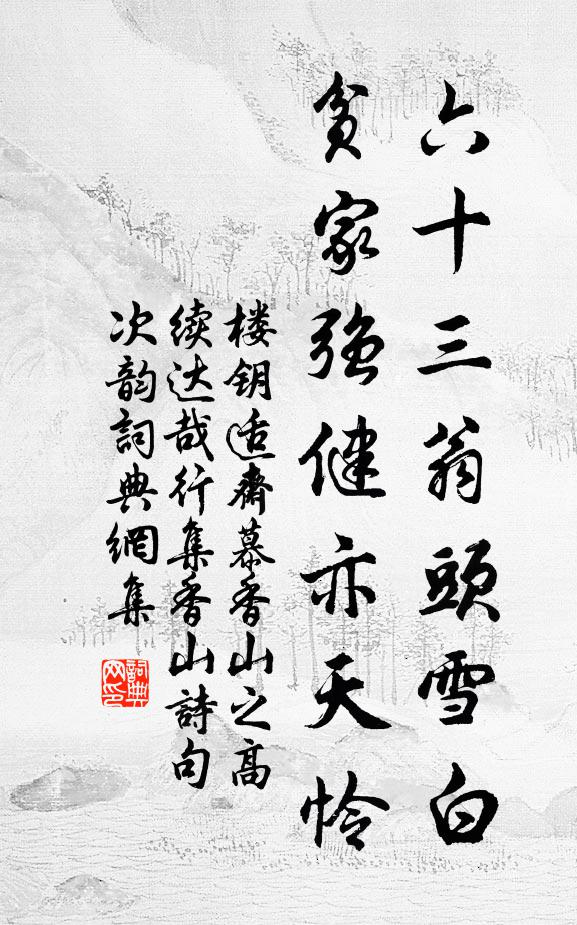 六十三翁頭雪白
貧家強健亦天怜
楼钥适齋慕香山之高
续达哉行集香山詩句
次韵詞典網集
詞典
网印